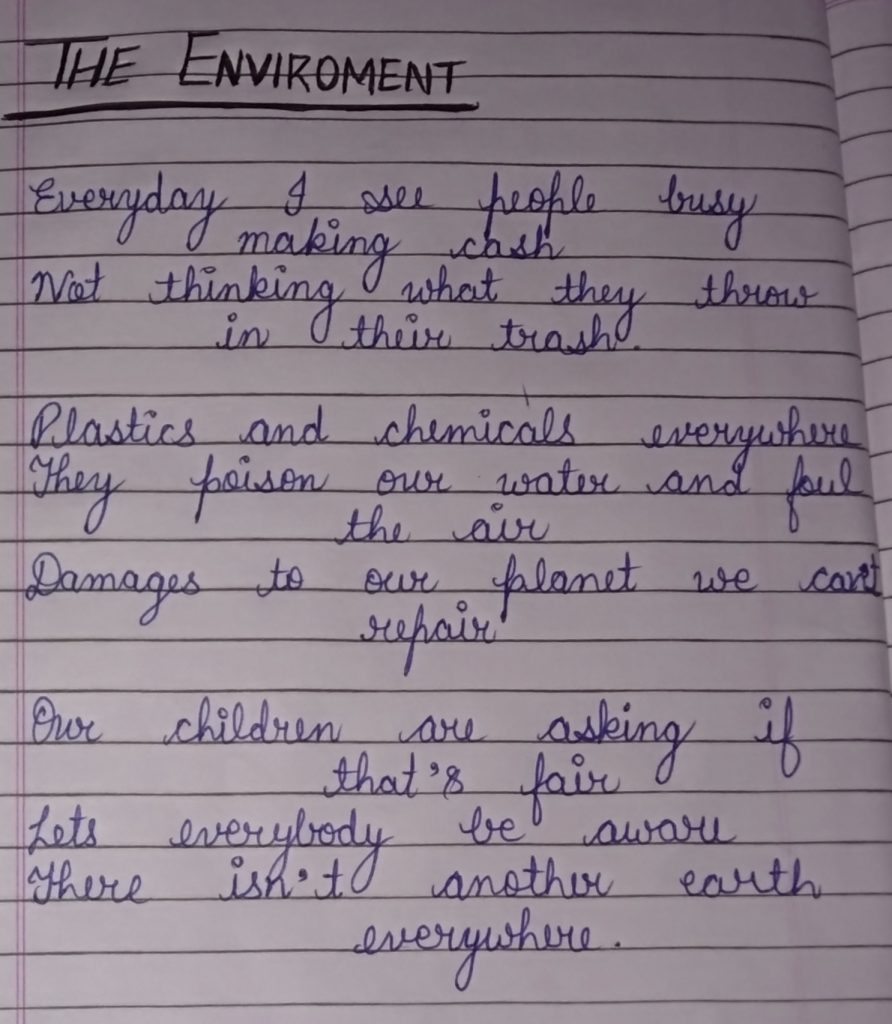 THE ENVIROMENT
Everyday I see people busy
making cash
Not thinking what they throw
in their trash.
Plastics and chemicals everywhere
They poison our water and foul
the air
Damages to our planet we can't
repair
Our children are asking if
that's fair
Lets everybody be aware
There isn't another earth
everywhere.